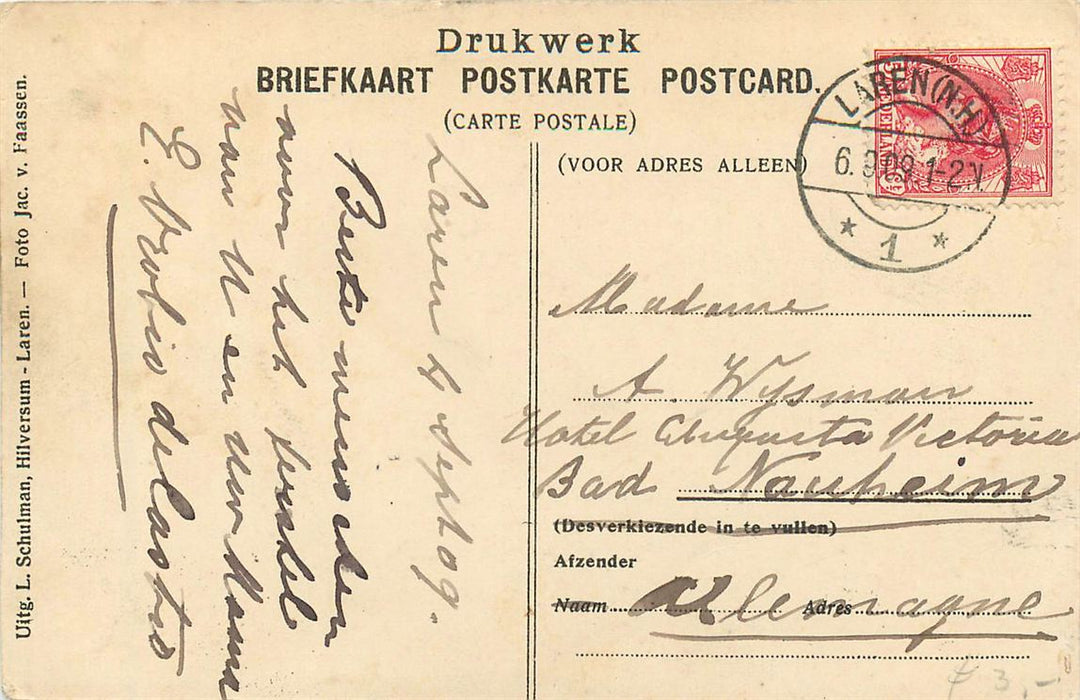 Drukwerk
BRIEFKAART POSTKARTE POSTCARD.
(CARTE POSTALE)
(VOOR ADRES ALLEEN)
LAREN (N.H)
6. 9 09 1-2 N.
* 1 *
NEDERLAND
Uitg. L. Schulman, Hilversum - Laren. — Foto Jac. v. Faassen.
Laren 4 Sept 09.
Beste menschen
het
van U en uw Mama
E. de Castro
Madame
A. Wysman
Hotel Augusta Victoria
Bad Nauheim
(Desverkiezende in te vullen)
Afzender
Naam Adres
Allemagne
f 3,-